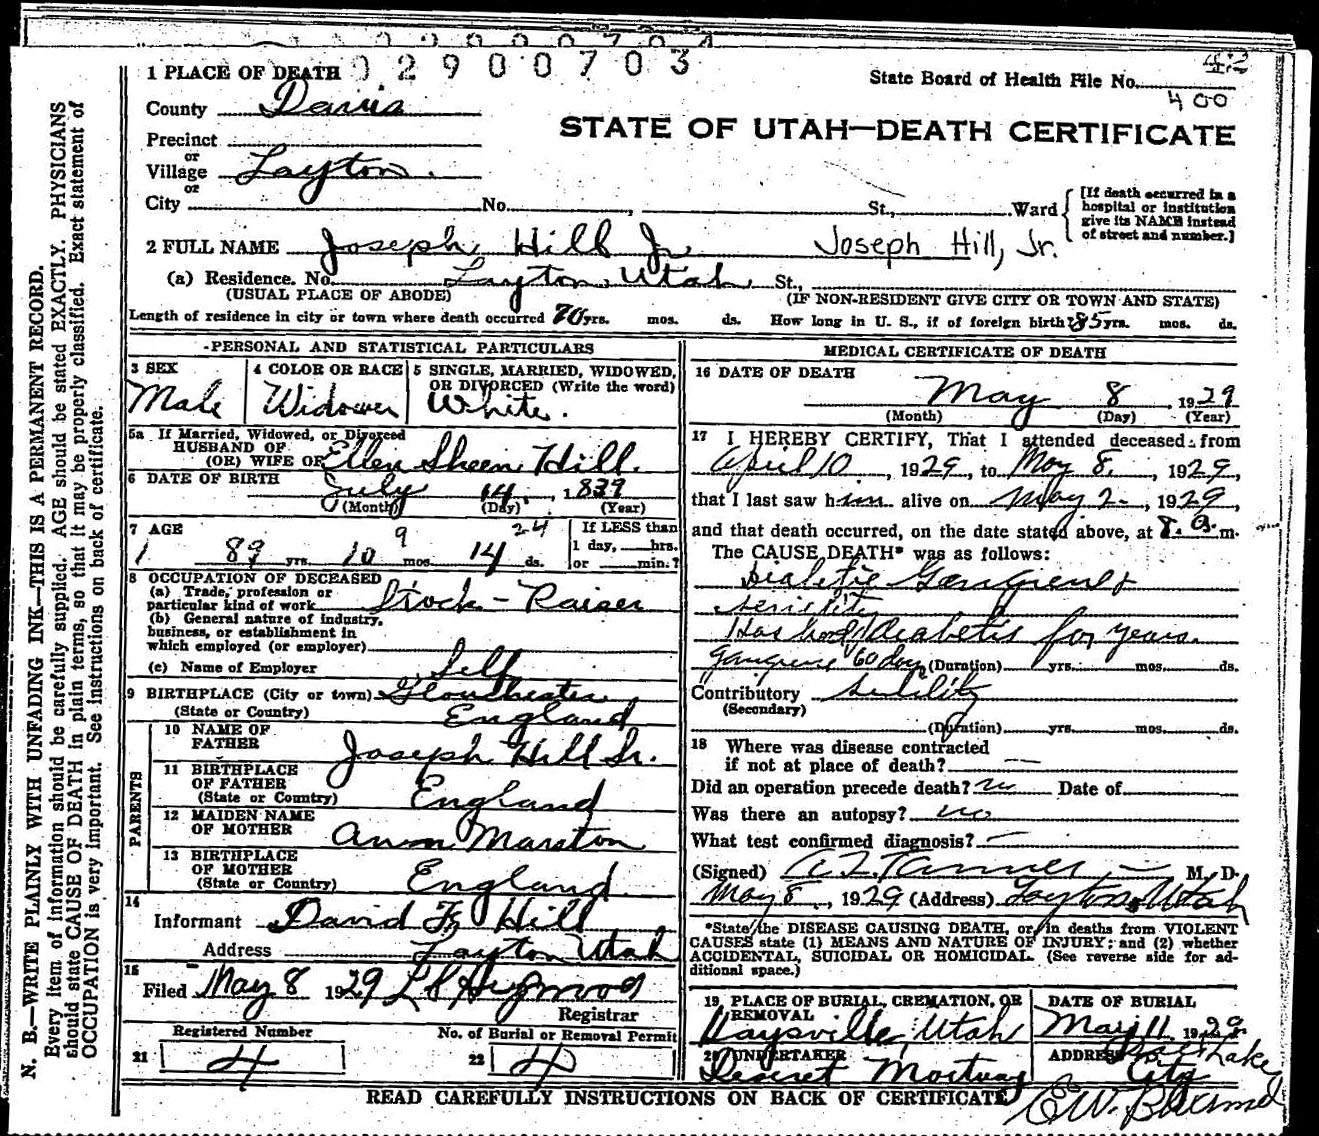 0 2 9 0 0 7 0 3
42
State Board of Health File No.
400
1 PLACE OF DEATH
County Davis
STATE OF UTAH—DEATH CERTIFICATE
Precinct
or
Village Layton.
or
City No. , St., Ward
[If death occurred in a
hospital or institution
give its NAME instead
of street and number.]
2 FULL NAME Joseph Hill Jr Joseph Hill, Jr.
(a) Residence. No. Layton, Utah St.,
(USUAL PLACE OF ABODE) (IF NON-RESIDENT GIVE CITY OR TOWN AND STATE)
Length of residence in city or town where death occurred 70 yrs. mos. ds. How long in U. S., if of foreign birth? 85 yrs. mos. ds.
PERSONAL AND STATISTICAL PARTICULARS
3 SEX
Male
4 COLOR OR RACE
Widower
5 SINGLE, MARRIED, WIDOWED,
OR DIVORCED (Write the word)
White.
5a If Married, Widowed, or Divorced
HUSBAND OF
(OR) WIFE OF Ellen Sheen Hill.
6 DATE OF BIRTH
July 14, 1839
(Month) (Day) (Year)
7 AGE 9 24
89 yrs. 10 mos. 14 ds.
If LESS than
1 day, hrs.
or min.?
8 OCCUPATION OF DECEASED
(a) Trade, profession or
particular kind of work Stock-Raiser
(b) General nature of industry,
business, or establishment in
which employed (or employer)
(c) Name of Employer Self
9 BIRTHPLACE (City or town) Gloucester
(State or Country) England
PARENTS
10 NAME OF
FATHER Joseph Hill Sr.
11 BIRTHPLACE
OF FATHER
(State or Country) England
12 MAIDEN NAME
OF MOTHER Ann Marston
13 BIRTHPLACE
OF MOTHER
(State or Country) England
14
Informant David F. Hill
Address Layton Utah
15
Filed May 8 1929
Registrar
Registered Number
21 4
No. of Burial or Removal Permit
22 4
MEDICAL CERTIFICATE OF DEATH
16 DATE OF DEATH
May 8 1929
(Month) (Day) (Year)
17 I HEREBY CERTIFY, That I attended deceased from
April 10, 1929, to May 8, 1929,
that I last saw him alive on May 2, 1929,
and that death occurred, on the date stated above, at 8. a. m.
The CAUSE DEATH* was as follows:
Diabetic Gangrene &
senility
Has had diabetis for years.
Gangrene 60 days (Duration) yrs. mos. ds.
Contributory Senility
(Secondary)
(Duration) yrs. mos. ds.
18 Where was disease contracted
if not at place of death? —
Did an operation precede death? no Date of
Was there an autopsy? no
What test confirmed diagnosis? —
(Signed) M. D.
May 8, 1929 (Address) Layton, Utah
*State the DISEASE CAUSING DEATH, or, in deaths from VIOLENT
CAUSES state (1) MEANS AND NATURE OF INJURY; and (2) whether
ACCIDENTAL, SUICIDAL OR HOMICIDAL. (See reverse side for ad-
ditional space.)
19 PLACE OF BURIAL, CREMATION, OR
REMOVAL
Kaysville, Utah
DATE OF BURIAL
May 11 1929
20 UNDERTAKER
Deseret Mortuary
ADDRESS Salt Lake
City
READ CAREFULLY INSTRUCTIONS ON BACK OF CERTIFICATE
N. B.—WRITE PLAINLY WITH UNFADING INK—THIS IS A PERMANENT RECORD.
Every item of information should be carefully supplied. AGE should be stated EXACTLY. PHYSICIANS
should state CAUSE OF DEATH in plain terms, so that it may be properly classified. Exact statement of
OCCUPATION is very important. See instructions on back of certificate.